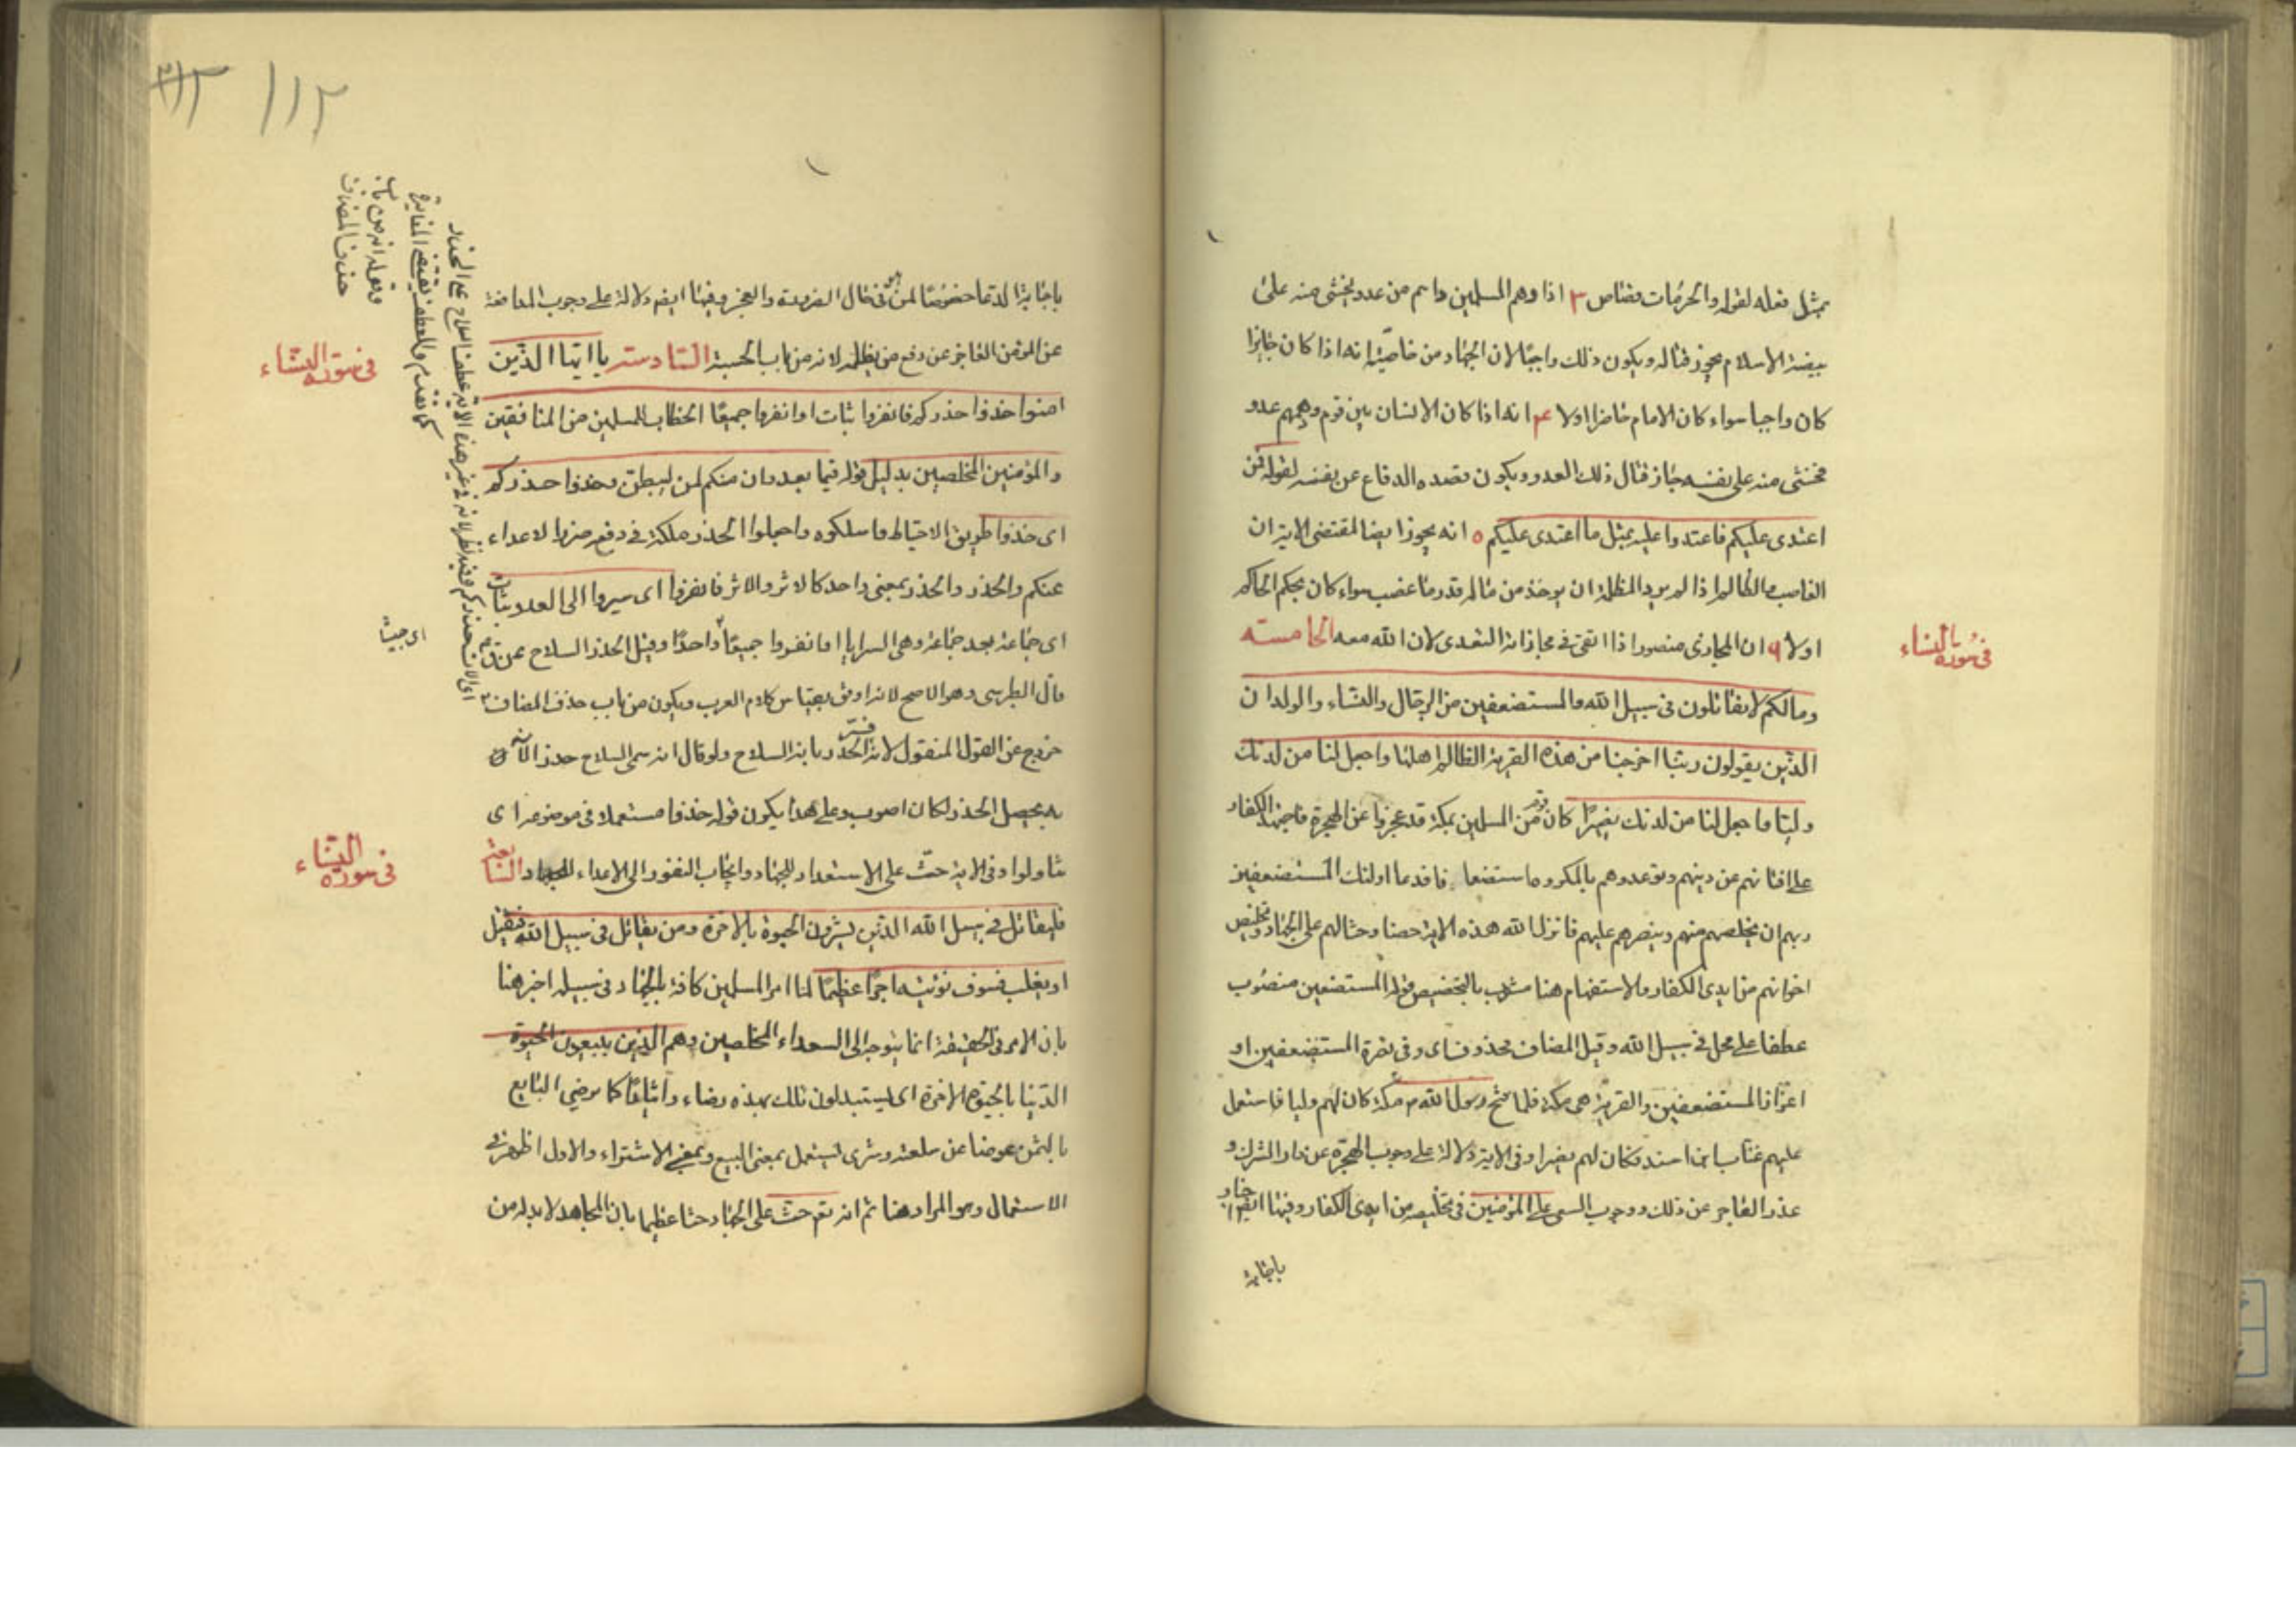 بمثل فعله لقوله والحرمات قصاص ٣ اذا وهم المسلمين داهم من عدو يخشى منه على
بيضة الاسلام يجوز قتاله ويكون ذلك واجبا لان الجهاد من خاصيته انه اذا كان جايزا
كان واجبا سواء كان الامام حاضرا اولا ٤ انه اذا كان الانسان بين قوم ودهمهم عدو
فخشى منه على نفسه جاز قتال ذلك العدو ويكون قصده الدفاع عن نفسه لقوله فمن
اعتدى عليكم فاعتدوا عليه بمثل ما اعتدى عليكم ٥ انه يجوز ايضا لمقتضى الاية ان
الغاصب والظالم اذا لم يرد المظلمة ان يوخذ من ماله قدر ما غصب سواء كان بحكم الحاكم
اولا ٦ ان المجازى منصور اذا اتقى في مجازاته التعدى لان الله معه الخامسة
ومالكم لا تقاتلون في سبيل الله والمستضعفين من الرجال والنساء والولدان
الذين يقولون ربنا اخرجنا من هذه القرية الظالم اهلها واجعل لنا من لدنك
وليا واجعل لنا من لدنك نصيرا كان قوم من المسلمين بمكة قد عجزوا عن الهجرة فاجتهد الكفار
على افتانهم عن دينهم وتوعدوهم بالمكروه استضعافا فدعا اولئك المستضعفين
ربهم ان يخلصهم منهم وينصرهم عليهم فانزل الله هذه الاية حضا وحثا لهم على الجهاد وتخليص
اخوانهم من ايدى الكفار والاستفهام هنا مشوب بالتخصيص قوله المستضعفين منصوب
عطفا على محل في سبيل الله وقيل المضاف محذوف اى وفى نصرة المستضعفين او
اعزاز المستضعفين والقرية هى مكة فلما فتح رسول الله م مكة كان لهم وليا فاستعمل
عليهم عتاب ابن اسيد فكان لهم نصيرا وفى الاية دلالة على وجوب الهجرة عن دار الشرك و
عذر العاجز عن ذلك ووجوب السعى على المؤمنين في تخليصه من ايدى الكفار وفيها ايضا اخبار
باجابة
في سورة النساء
باجابة الدعا خصوصا لمن هو في حال الضرورة والعجز وفيها ايض دلالة على وجوب المدافعة
عن المؤمن العاجز عن دفع من يظلمه لانه من باب الحسبة السادسة يا ايها الذين
امنوا خذوا حذركم فانفروا ثبات او انفروا جميعا الخطاب للمسلمين من المنافقين
والمؤمنين المخلصين بدليل قوله فيما بعد وان منكم لمن ليبطئن وخذوا حذركم
اى خذوا طريق الاحتياط واسلكوه واجعلوا الحذر ملكة في دفع ضرر الاعداء
عنكم والحذر والحذر بمعنى واحد كالاثر والاثر فانفروا اى سيروا الى العدو ثبات
اى جماعة بعد جماعة وهى السرايا او انفروا جميعا واحدا وقيل الحذر السلاح عن الباقر م
قال الطبرسى وهو الاصح لانه اوفق بقياس كلام العرب ويكون من باب حذف المضاف
خروج عن القول المنقول لانه فسر الحذر بانه السلاح ولو قال انه سمى السلاح حذرا لانه
به يحصل الحذر لكان اصوب وعلى هذا يكون قوله خذوا مستعملا في موضوعه اى
تناولوا وفى الاية حث على الاستعداد للجهاد وايجاب النفور الى الاعداء للجهاد السابعة
فليقاتل في سبيل الله الذين يشرون الحيوة بالاخرة ومن يقاتل في سبيل الله فيقتل
او يغلب فسوف نؤتيه اجرا عظيما لما امر المسلمين كافة بالجهاد في سبيله اخبر هنا
بان الامر في الحقيقة انما يتوجه الى السعداء المخلصين وهم الذين يبيعون الحيوة
الدنيا بالحيوة الاخرة اى يستبدلون تلك بهذه رضاء وايثارا كما يرضى البايع
بالثمن عوضا عن سلعته وشرى يستعمل بمعنى البيع وبمعنى الاشتراء والاول اظهر في
الاستعمال وهو المراد هنا ثم انه تعم حث على الجهاد حثا عظيما بان المجاهد لا بد له من
في سورة النساء
في سورة النساء
حذف المضاف
كما تقدم والعطف يقتضى المغايرة
١١٢